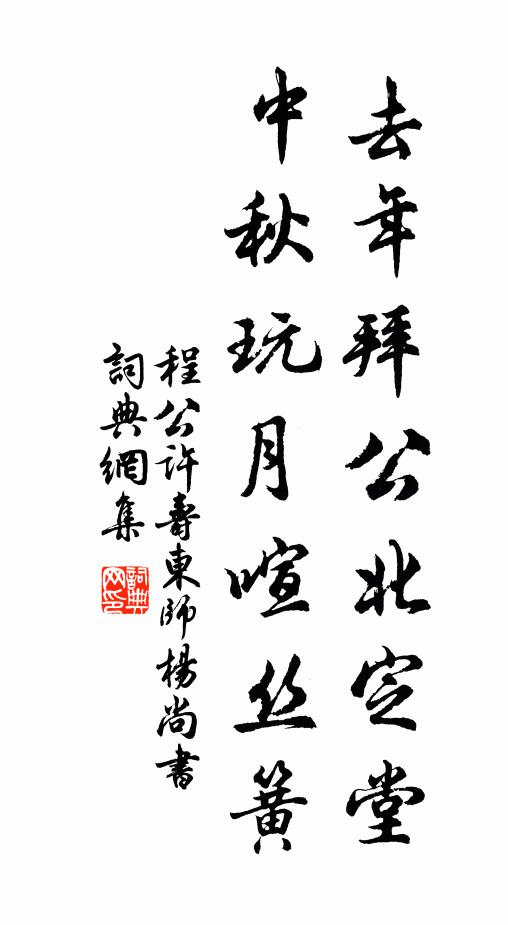 去年拜公北定堂
中秋玩月喧丝簧
程公许寿東师楊尚書
詞典網集
詞典网印